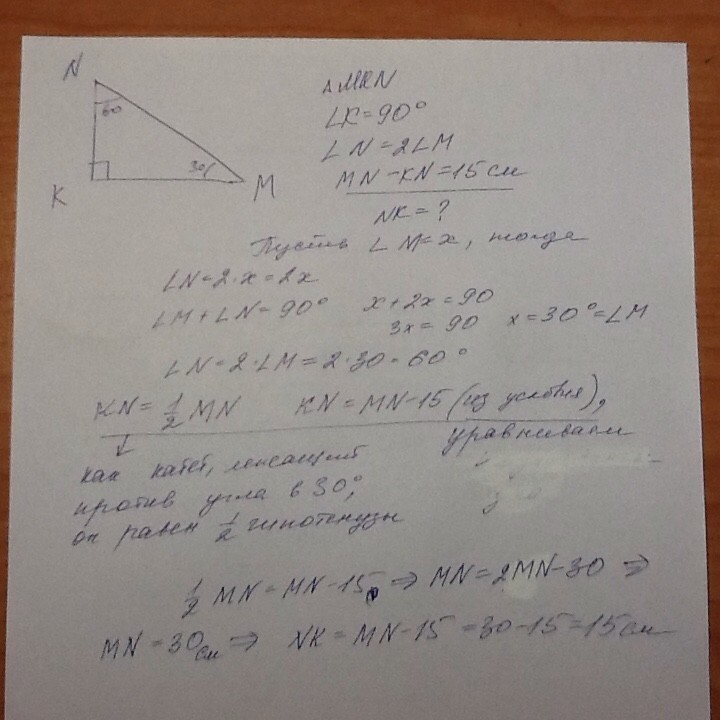 N
60
30
K
M
△MKN
∠K=90°
∠N=2∠M
MN-KN=15см
NK=?
Пусть ∠M=x, тогда
∠N=2·x=2x
∠M+∠N=90° x+2x=90
3x=90 x=30°=∠M
∠N=2·∠M=2·30=60°
KN=1/2 MN KN=MN-15 (из условия),
уравниваем
как катет, лежащий
против угла в 30°,
он равен 1/2 гипотенузы
1/2 MN=MN-15 ⇒ MN=2MN-30 ⇒
MN=30см ⇒ NK=MN-15=30-15=15см